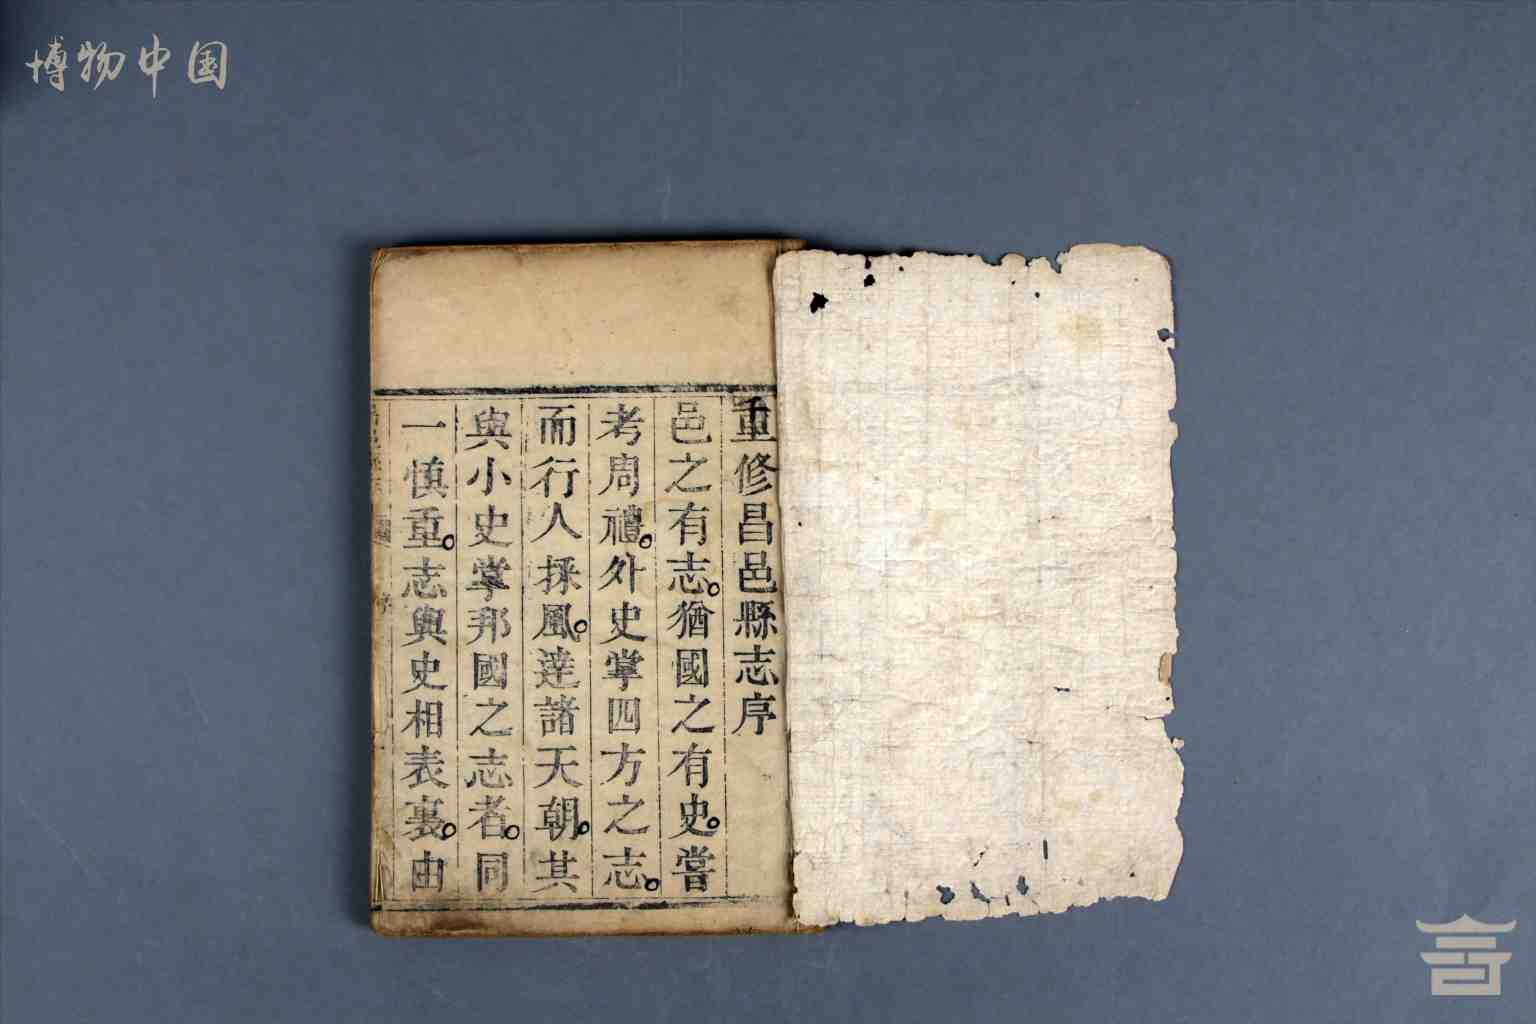 博物中国
重修昌邑縣志序
邑之有志。猶國之有史。嘗
考周禮。外史掌四方之志。
而行人採風。達諸天朝。其
與小史掌邦國之志者。同
一慎重。志與史相表裏。由